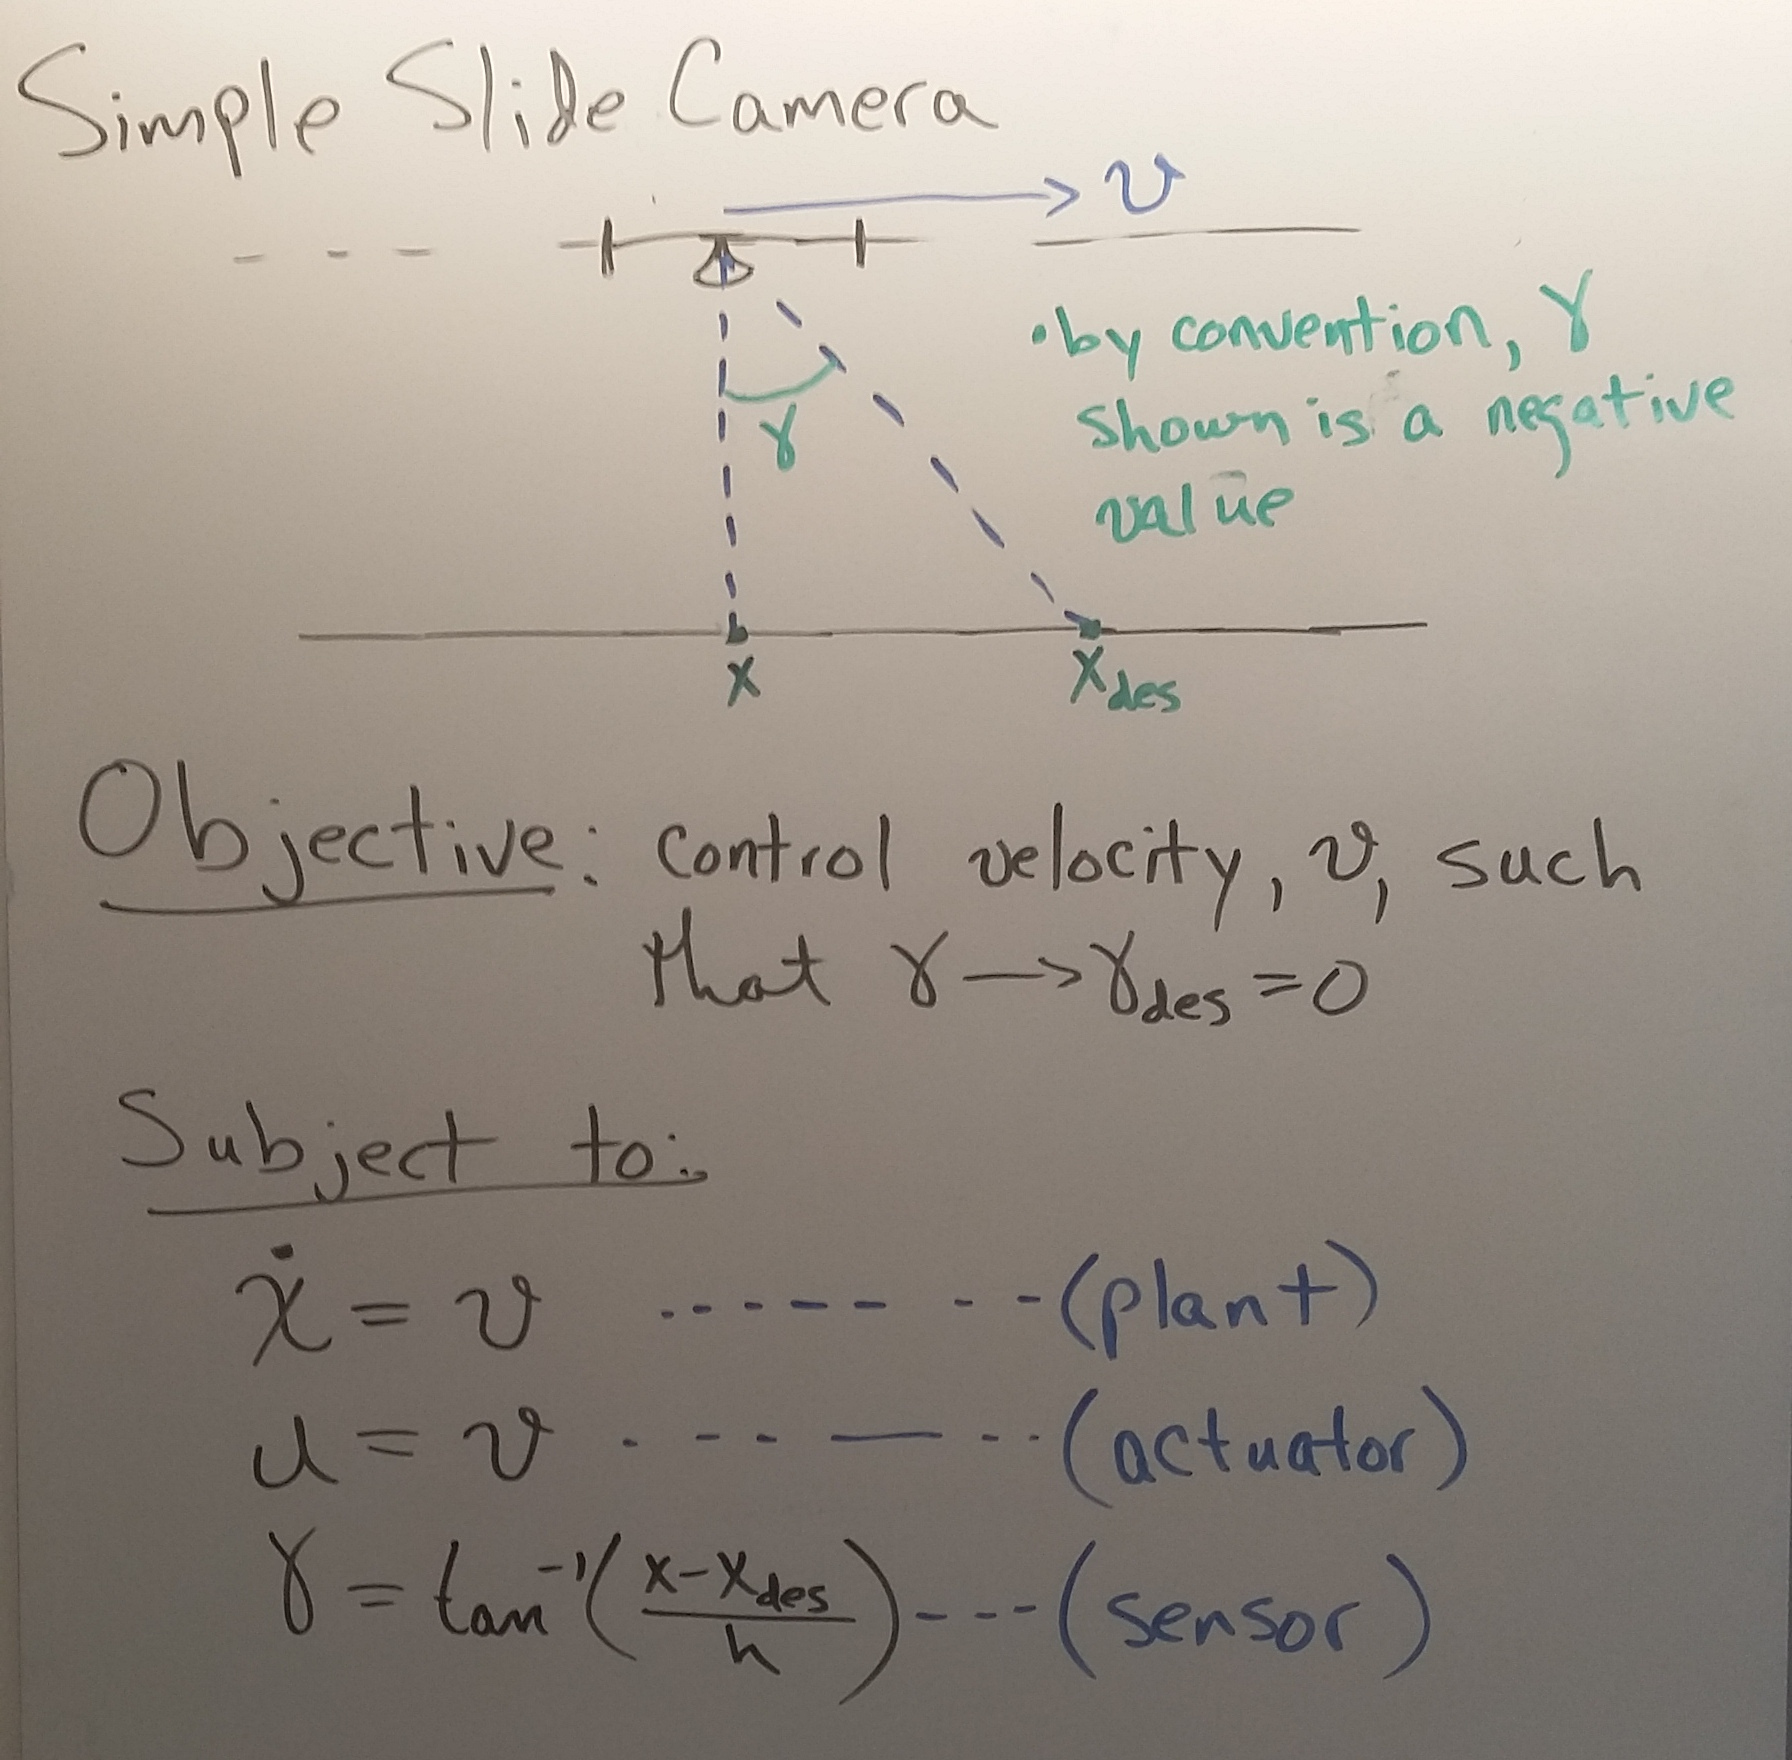 Simple Slide Camera
v
• by convention, γ
shown is a negative
value
γ
x
x_des
Objective: control velocity, v, such
that γ → γ_des = 0
Subject to:
ẋ = v ------- --(plant)
u = v . --- — --(actuator)
γ = tan⁻¹((x-x_des)/h) ----(sensor)